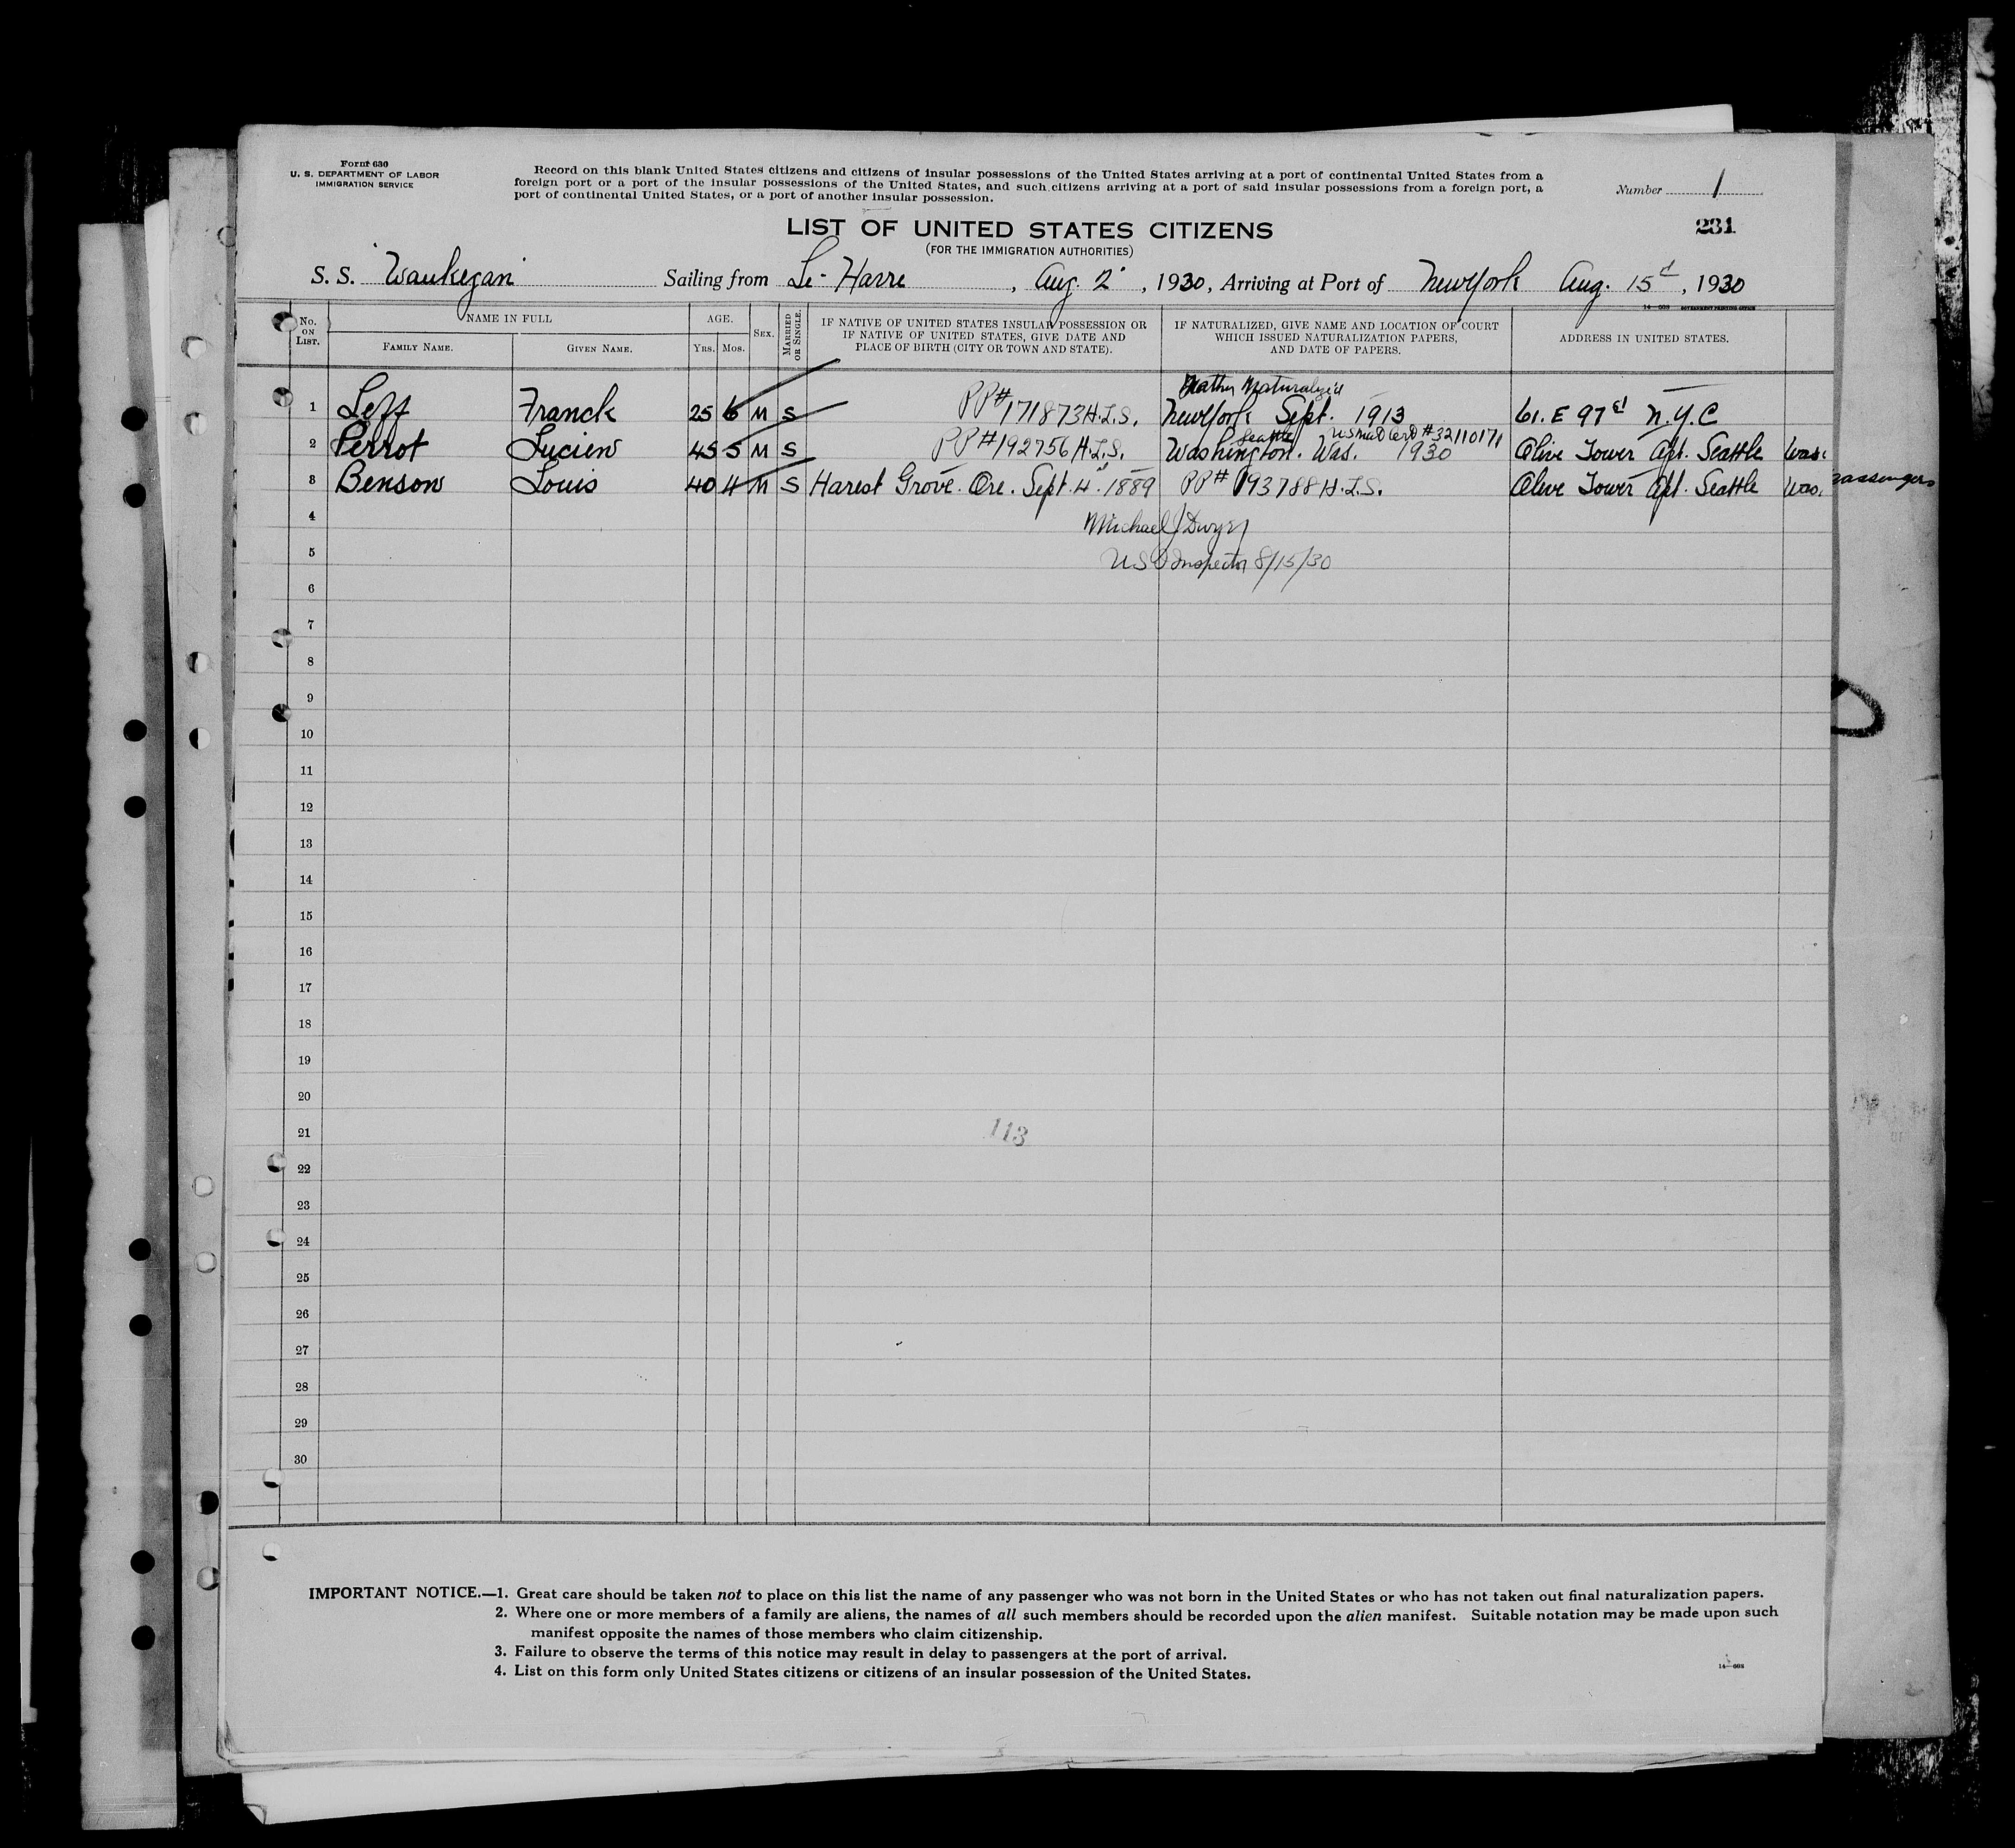 Form 630
U. S. DEPARTMENT OF LABOR
IMMIGRATION SERVICE
Record on this blank United States citizens and citizens of insular possessions of the United States arriving at a port of continental United States from a
foreign port or a port of the insular possessions of the United States, and such citizens arriving at a port of said insular possessions from a foreign port, a
port of continental United States, or a port of another insular possession.
Number 1
231
LIST OF UNITED STATES CITIZENS
(FOR THE IMMIGRATION AUTHORITIES)
S. S. Waukegan Sailing from Le-Havre, Aug. 2, 1930, Arriving at Port of New York Aug. 15, 1930
14—608 GOVERNMENT PRINTING OFFICE
No. ON LIST.
NAME IN FULL
FAMILY NAME. GIVEN NAME.
AGE.
Yrs. Mos.
SEX.
MARRIED OR SINGLE.
IF NATIVE OF UNITED STATES INSULAR POSSESSION OR
IF NATIVE OF UNITED STATES, GIVE DATE AND
PLACE OF BIRTH (CITY OR TOWN AND STATE).
IF NATURALIZED, GIVE NAME AND LOCATION OF COURT
WHICH ISSUED NATURALIZATION PAPERS,
AND DATE OF PAPERS.
ADDRESS IN UNITED STATES.
1 Leff Franck 25 6 M S PP# 171873 H.L.S. New York Sept. 1913 61. E 97 N.Y.C
Seattle
2 Perrot Lucien 45 5 M S PP# 192756 H.L.S. Washington. Was. 1930 Olive Tower Apt. Seattle Was.
3 Benson Louis 40 4 M S Harest Grove. Ore. Sept. 4. 1889 PP# 193788 H.L.S. Olive Tower Apt. Seattle Was.
passengers
4 Michael J Dwyer
5 US Inspector 8/15/30
6
7
8
9
10
11
12
13
14
15
16
17
18
19
20
21 113
22
23
24
25
26
27
28
29
30
IMPORTANT NOTICE.—1. Great care should be taken not to place on this list the name of any passenger who was not born in the United States or who has not taken out final naturalization papers.
2. Where one or more members of a family are aliens, the names of all such members should be recorded upon the alien manifest. Suitable notation may be made upon such
manifest opposite the names of those members who claim citizenship.
3. Failure to observe the terms of this notice may result in delay to passengers at the port of arrival.
4. List on this form only United States citizens or citizens of an insular possession of the United States.
14—608